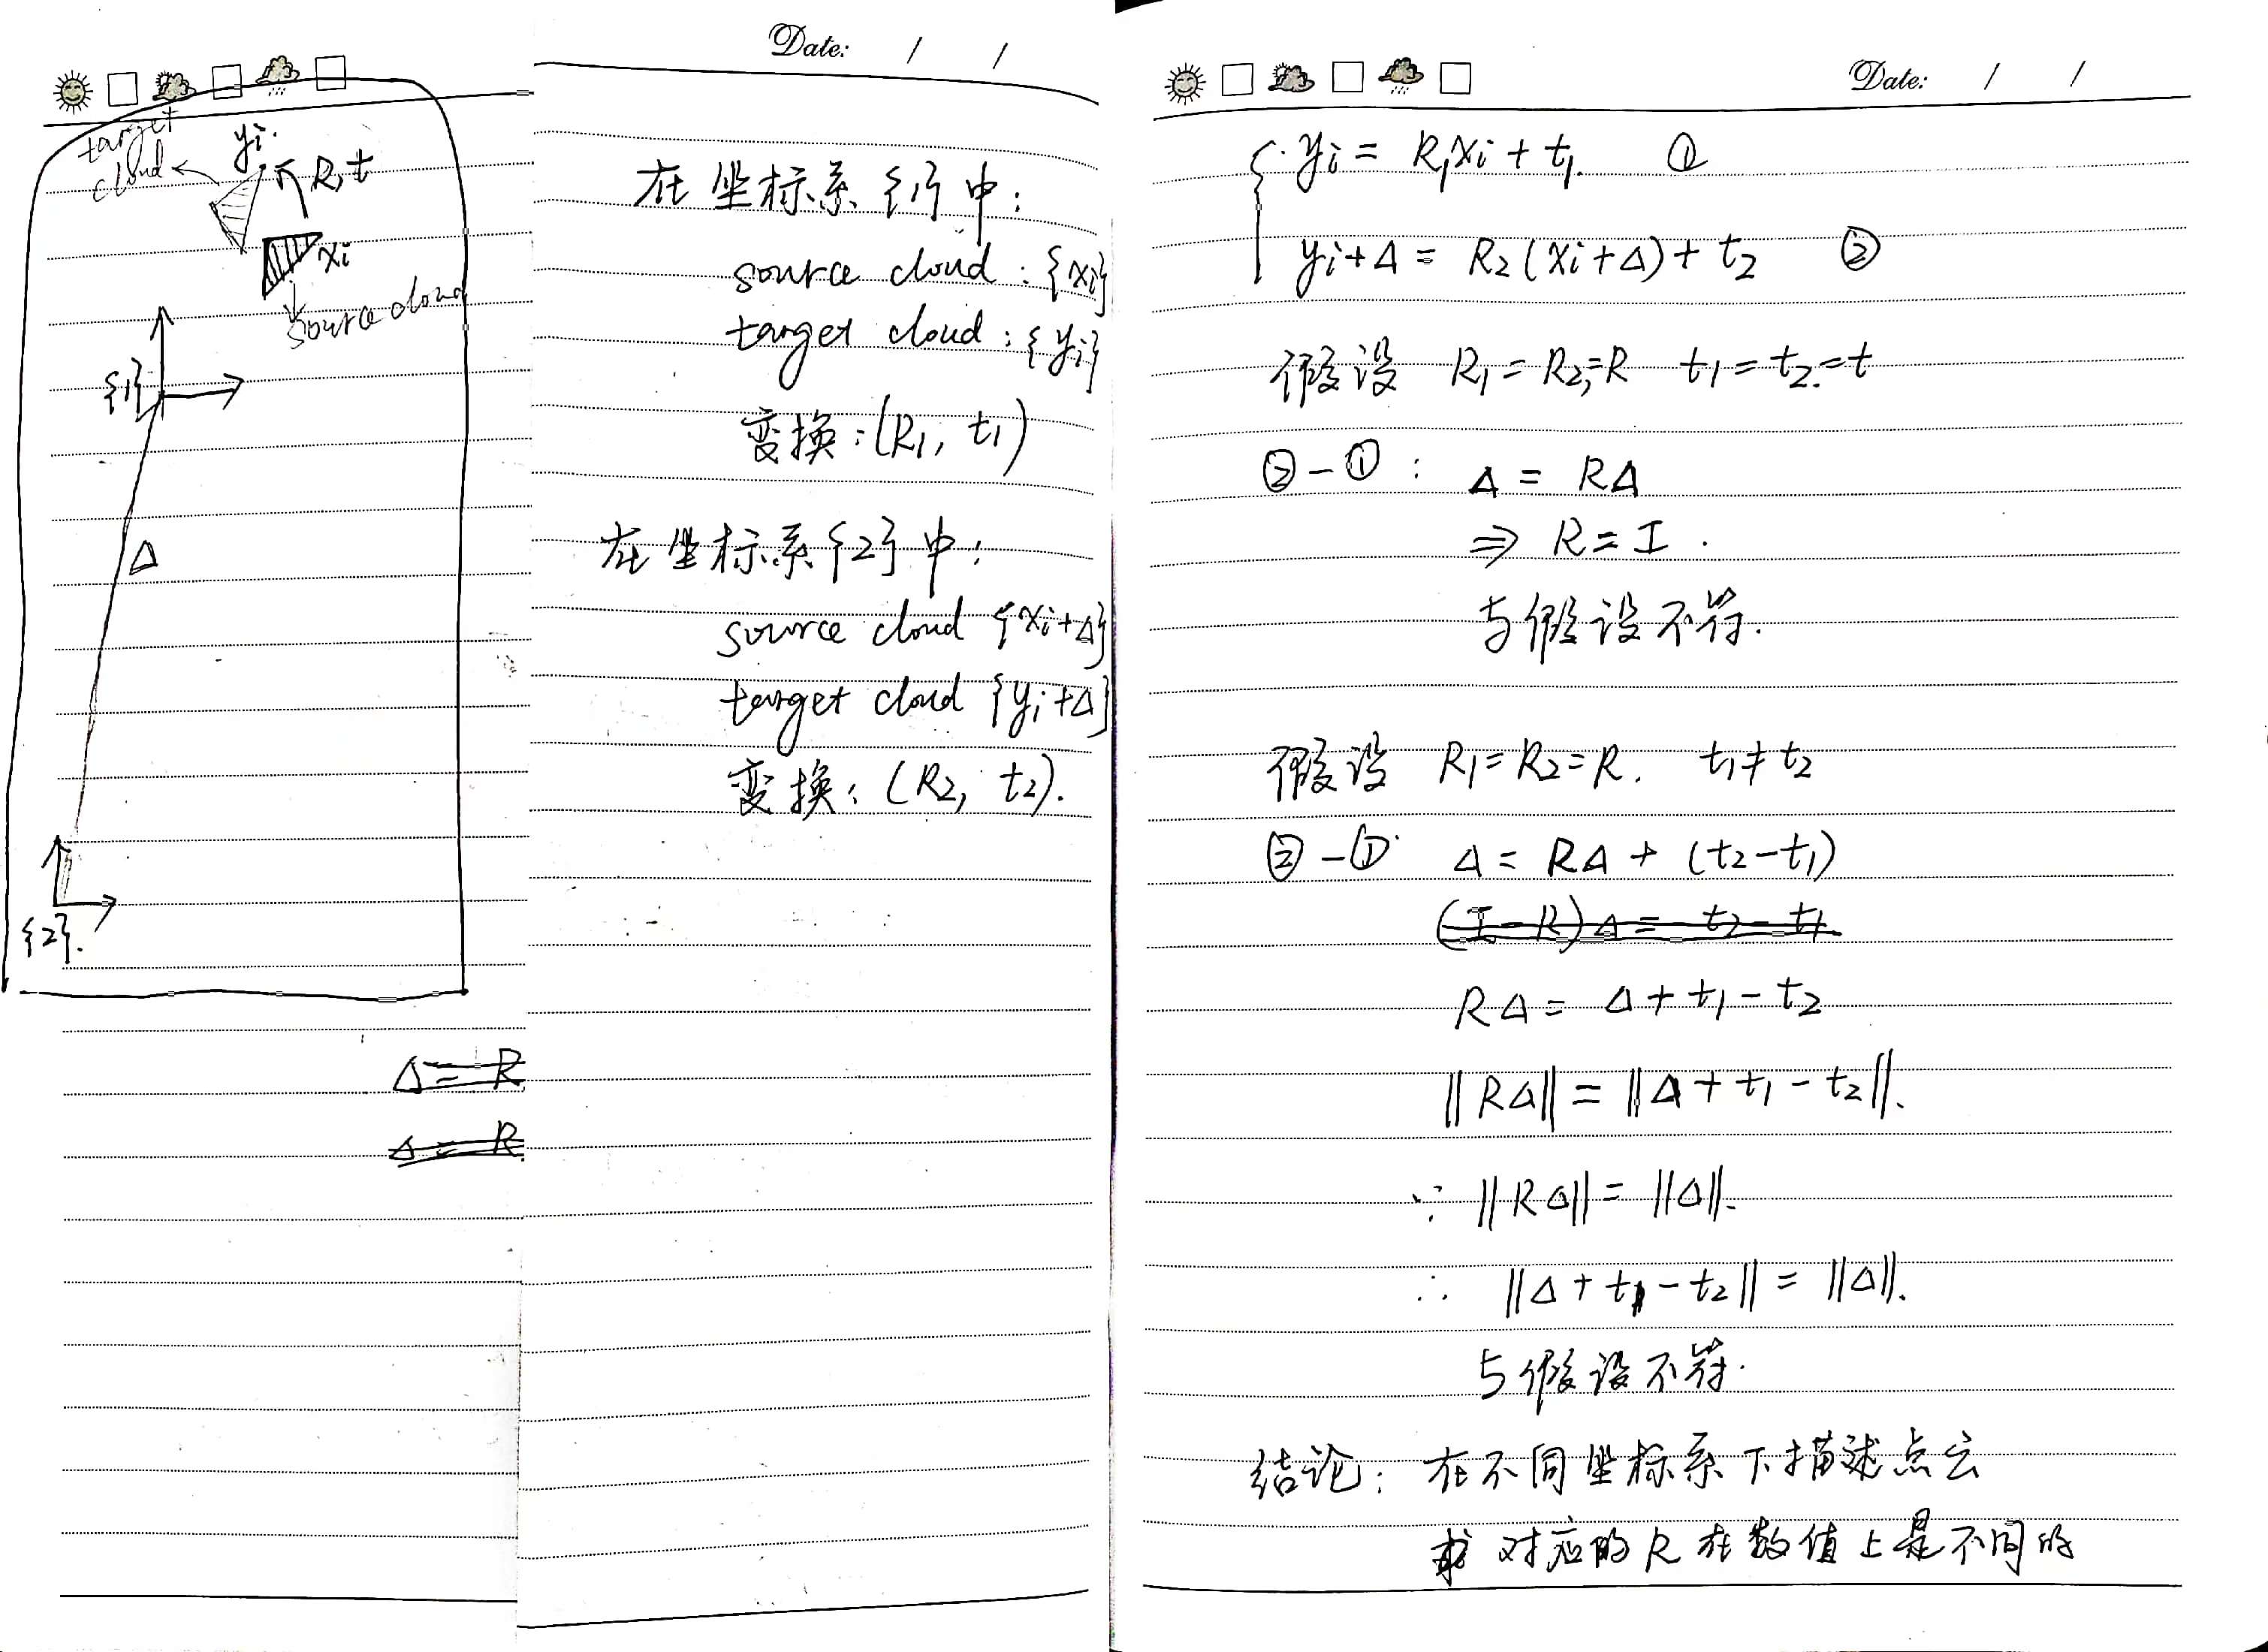 Date: / /
target
cloud
yi
R, t
xi
source cloud
{1}
Δ
{2}.
Δ = R
Δ = R
在坐标系{1}中:
source cloud : {xi}
target cloud : {yi}
变换:(R₁, t₁)
在坐标系{2}中:
source cloud {xi+Δ}
target cloud {yi+Δ}
变换: (R₂, t₂).
Date: / /
yi = R₁xi + t₁. ①
yi+Δ = R₂(xi+Δ) + t₂ ②
假设 R₁ = R₂ = R t₁ = t₂ = t
②-① : Δ = RΔ
⇒ R = I .
与假设不符.
假设 R₁ = R₂ = R. t₁ ≠ t₂
②-① Δ = RΔ + (t₂-t₁)
(I-R)Δ = t₂-t₁
RΔ = Δ + t₁ - t₂
||RΔ|| = ||Δ + t₁ - t₂||.
∵ ||RΔ|| = ||Δ||.
∴ ||Δ + t₁ - t₂|| = ||Δ||.
与假设不符.
结论: 在不同坐标系下描述点云
对应的R在数值上是不同的